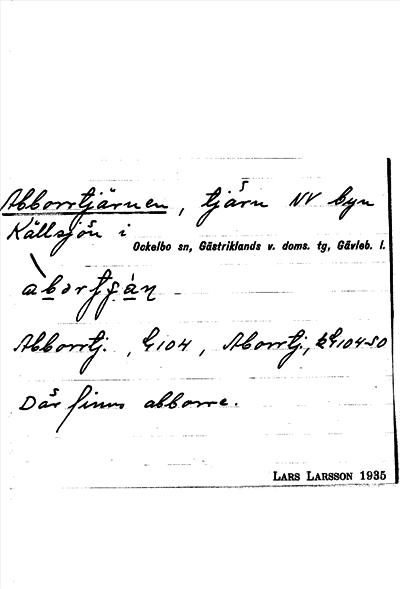 Abborrtjärnen, tjärn NV byn
Källsjön i Ockelbo sn, Gästriklands v. doms. tg, Gävleb. l.
Abborrtj., G104, Aborrtj.,
Där finns abborre.
LARS LARSSON 1935